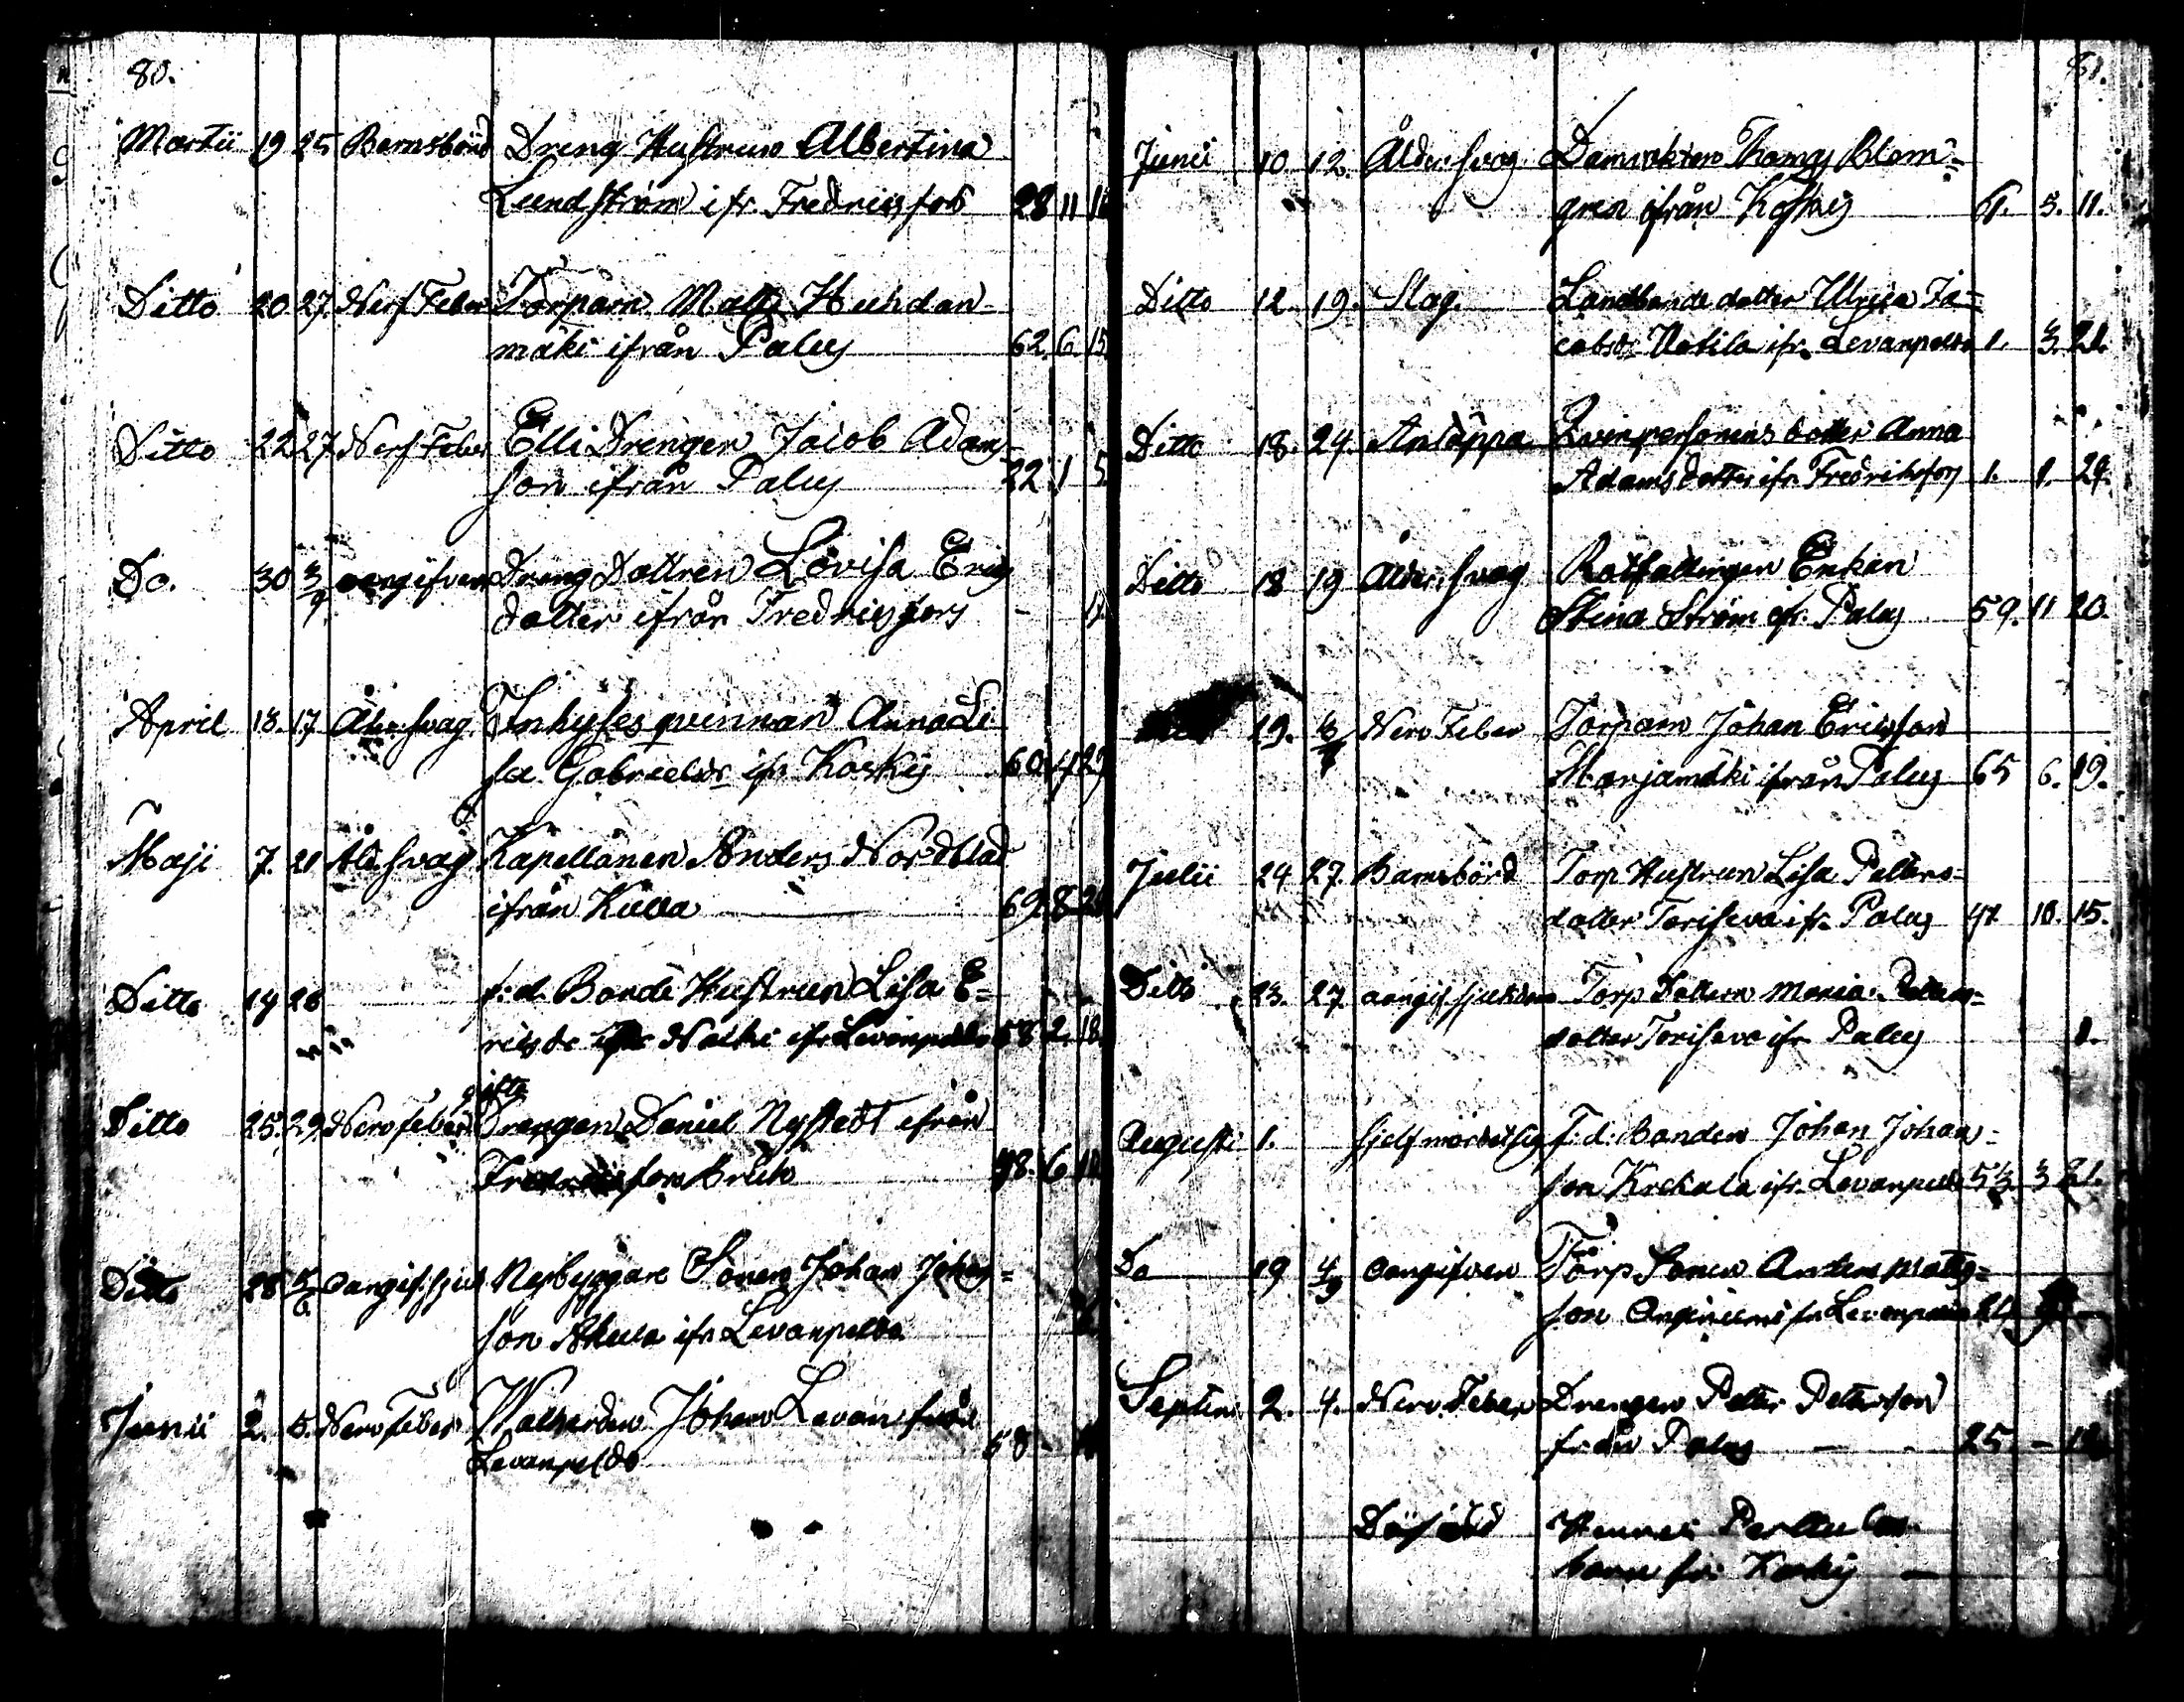 80.
Martii 19 25 Barnsbörd Dreng Hustrun Albertina
Lundström ifr. Fredriksfors 28 11
Ditto 20 27 Nerf Feber Torparn Matts Huhdan-
mäki ifrån Palus 62. 6 15
Ditto 22 27 Nerf Feber Elli Drengen Jacob Adams
son ifrån Palus 22 1 5
Do. 30 3/4 oangifven Dreng Dottren Lovisa Erics
dotter ifrån Fredricsfors -
April 13. 17 Åldersvag Inhyses qvinnan Anna Li
sa Gabrielsdr ifr Koskis 60 4 29
Maji 7. 21 Åldsvag Kapellanen Anders Nordblad
ifrån Kulla 69 8
Ditto 14 26 f:d. Bonde Hustrun Lisa E-
ricsdr ifr Levanpelto 58 2. 18.
Ditto 25. 29. Nerv feber gifte Drengen Daniel Nystedt ifrån
Fredricsfors Bruk 48. 6
Ditto 28 5/6 oangif. sjuk Nybyggare Sonen Johan Johans=
son Akula ifr Levanpelto
Junii 2. 5. Nerv feber Johan Levan från
Levanpelto 58 -
81.
Junii 10. 12. Ålder svag Damvakten Thomas Blom=
gren ifrån Koskis 61. 5. 11.
Ditto 12. 19. Slag. Landbonde dotter Ulrica Ja=
cobsdr Uotila ifr. Levanpelto 1. 3. 21.
Ditto 18. 24. Anläppa Qvinpersonens dotter Anna
Adamsdotter ifr. Fredriksfors 1. 1. 24.
Ditto 18 19 Ålder svag Rotfattigen Enkan
Stina Ström ifr. Palus 59. 11 20.
29. Nerv Feber Torparn Johan Ericsson
Marjamäki ifrån Palus 65 6. 19.
Julii 24 27. Barnsbörd Torp Hustrun Lisa Petters-
dotter Toriseva ifr. Palus 47 10. 15.
Ditto 23. 27. oangif. sjukdom Torp Dottern Maria Petters=
dotter Toriseva ifr Palus 1.
Augusti 1. sjelfmördat sig f: d: Bonden Johan Johan-
son Krekala ifr. Levanpelto 53. 3 21.
Do 19 4/9 oangifven Torp Sonen Anders Matts=
son Levanpelto
Septem 2. 4. Nerv. Feber Drengen Petter Petterson
från Palus 25 -
Dödfödd
barn fr: Koskis